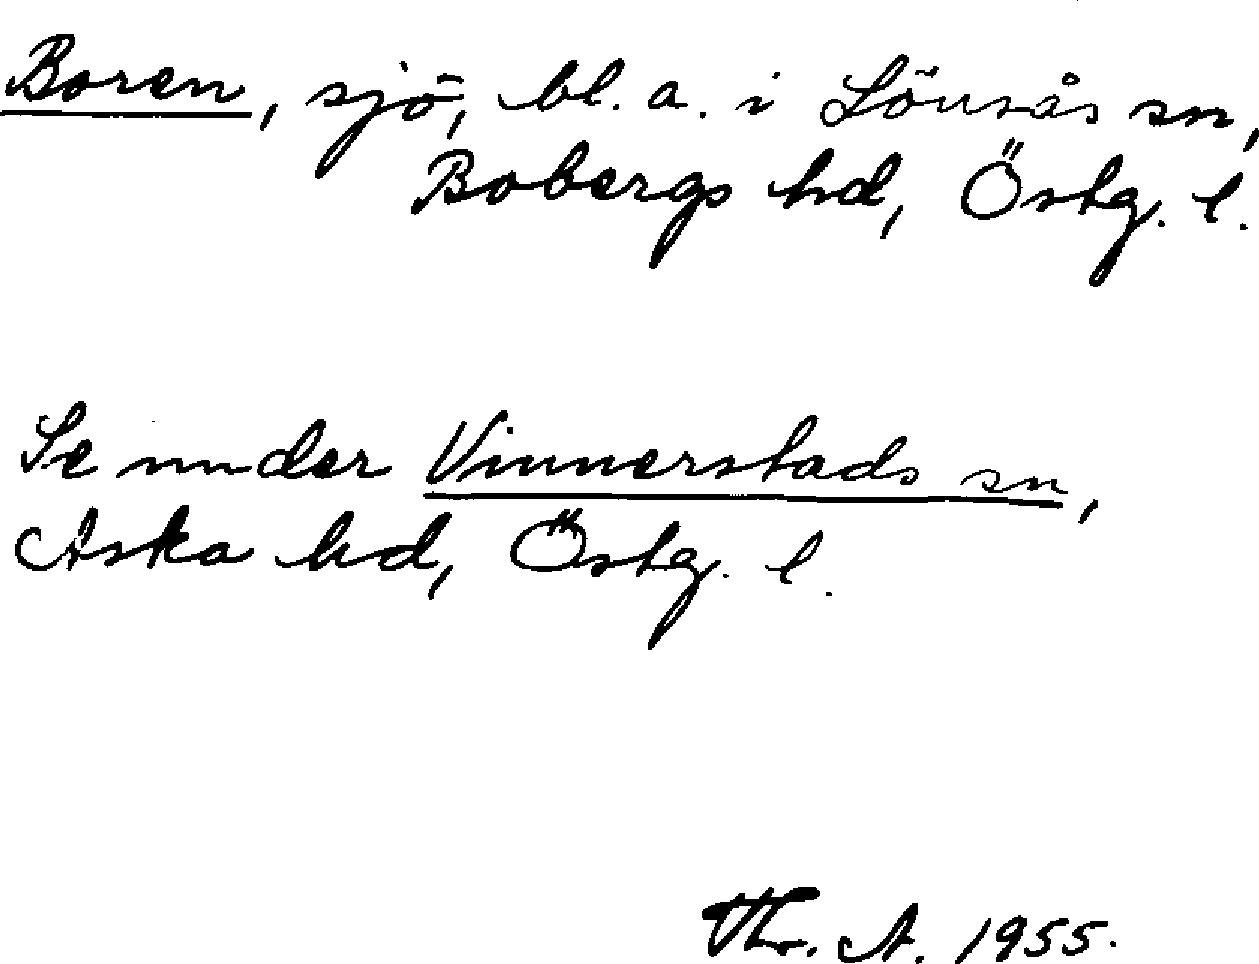 Boren, sjö, bl. a. i Lönsås sn,
Bobergs hd, Östg. l.
Se under Vinnerstads sn,
Aska hd, Östg. l.
Thr. A. 1955.